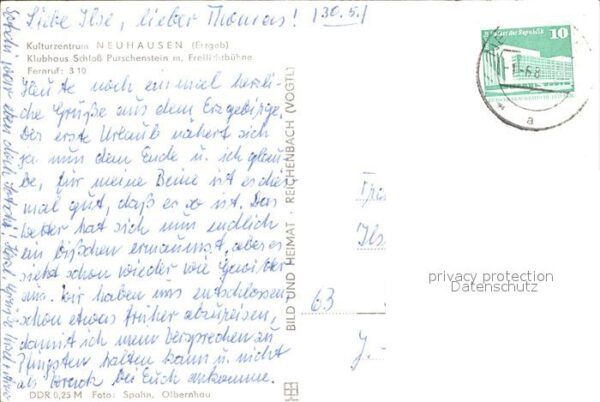 Liebe Ilse, lieber Thomas! (30.5.)
Kulturzentrum NEUHAUSEN (Erzgeb)
Klubhaus Schloß Purschenstein m. Freilichtbühne
Fernruf: 310
Heute noch einmal herzli-
che Grüße aus dem Erzgebirge.
Der erste Urlaub nähert sich
ja nun dem Ende u. ich glau-
be, für meine Beine ist es die-
mal gut, daß es so ist. Das
Wetter hat sich nun endlich
ein bißchen ermannt, aber es
sieht schon wieder wie Gewitter
aus. Wir haben uns entschlossen
schon etwas früher abzureisen,
damit ich mein Versprechen zu
Pfingsten halten kann u. nicht
als Wrack bei Euch ankomme.
DDR 0,25 M Foto: Spahn, Olbernhau
BILD UND HEIMAT · REICHENBACH (VOGTL)
10
a
Ils
63
J.
privacy protection
Datenschutz